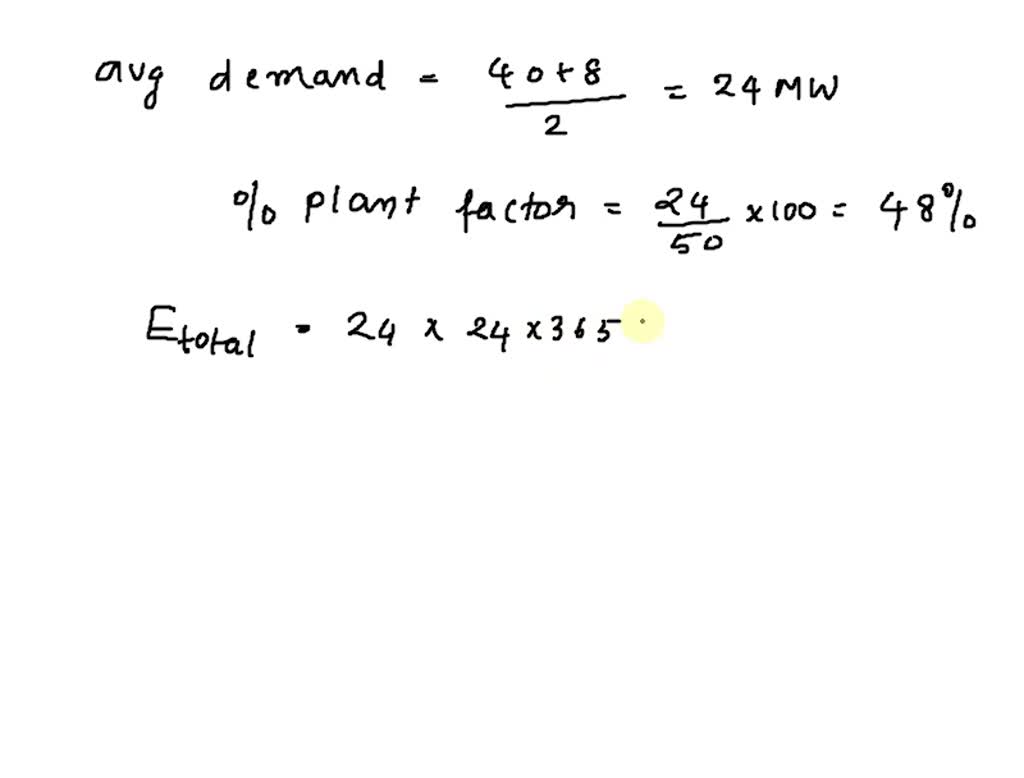 avg demand = 40+8/2 = 24 MW
% plant factor = 24/50 x100 = 48%
Etotal = 24 x 24 x 365